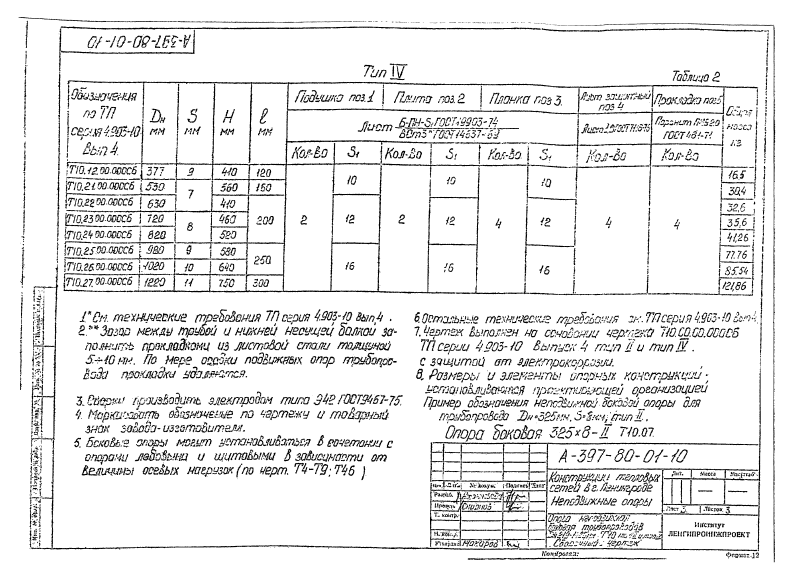 А-397-80-01-10
Тип IV
Таблица 2
Обозначения по ТП серия 4.903-10 Вып 4. | Dн мм | S мм | H мм | ℓ мм | Подушка поз.1 | Плита поз.2 | Планка поз 3. | Лист защитный поз 4 | Прокладка поз5 | Общая масса
Лист Б-ПН-S₁ ГОСТ 19903-74 / ВСт3 ГОСТ 14637-69
ГОСТ 481-71
Кол-во | S₁ | Кол-во | S₁ | Кол-во | S₁ | Кол-во | Кол-во
Т10.12.00.000СБ | 377 | 9 | 410 | 120 | 2 | 10 | 2 | 10 | 4 | 10 | 4 | 4 | 16.5
Т10.21.00.000СБ | 530 | 7 | 560 | 160 | 30,4
Т10.22.00.000СБ | 630 | 410 | 200 | 12 | 12 | 12 | 32,6
Т10.23.00.000СБ | 720 | 8 | 460 | 35,6
Т10.24.00.000СБ | 820 | 520 | 41,26
Т10.25.00.000СБ | 980 | 9 | 580 | 250 | 16 | 16 | 16 | 77.76
Т10.26.00.000СБ | 1020 | 10 | 640 | 85.54
Т10.27.00.000СБ | 1220 | 11 | 750 | 300 | 121,86
1* См. технические требования ТП серия 4.903-10 вып.4.
2.** Зазор между трубой и нижней несущей балкой за-
полнить прокладками из листовой стали толщиной
5÷10 мм. По мере осадки подвижных опор трубопро-
вода прокладки удаляются.
3. Сварку производить электродом типа Э42 ГОСТ9467-75.
4. Маркировать обозначение по чертежу и товарный
знак завода-изготовителя.
5. Боковые опоры могут устанавливаться в сочетании с
опорами лобовыми и щитовыми в зависимости от
величины осевых нагрузок (по черт. Т4-Т9; Т46)
6. Остальные технические требования см. ТП серия 4.903-10 вып4
7. Чертеж выполнен на основании чертежа Т10.00.00.000СБ
ТП серии 4.903-10 Выпуск 4 тип II и тип IV.
с защитой от электрокоррозии.
8. Размеры и элементы опорных конструкций
устанавливаются проектирующей организацией
Пример обозначения неподвижной боковой опоры для
трубопровода Dн=325мм, S=8мм; тип II.
Опора боковая 325×8-II Т10.07.
А-397-80-01-10
Конструкции тепловых
сетей в г. Ленинграде
Неподвижные опоры
Лит. | Масса | Масштаб
Лист 3 | Листов 3
№ докум. | Подпись | Дата
Разраб.
Провер.
Т. контр.
Н. контр.
Утверд. Макаров
Опора неподвижная
боковая трубопроводов
Сборочный чертеж
Институт
ЛЕНГИПРОИНЖПРОЕКТ
Копировал:
Формат 12